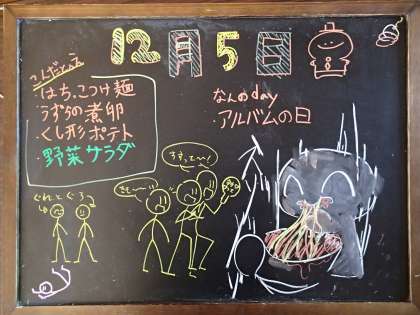 12月5日
こんだて
・はちこつけ麺
・うずらの煮卵
・くし形ポテト
・野菜サラダ
なんのday
アルバムの日
ぐれとぐろ